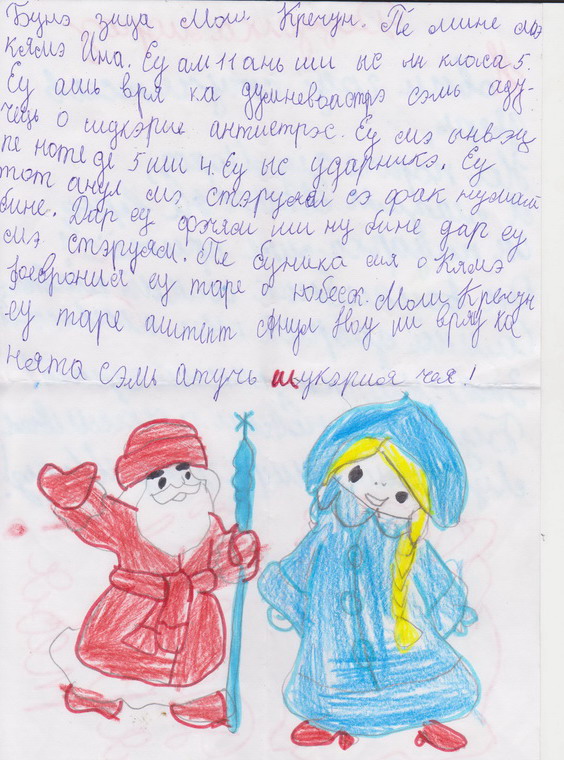 Бунэ зица Мош Кречун. Пе мине мэ
кямэ Ина. Еу ам 11 ань ши ыс ын класа 5.
Еу ашь вря ка думневоастрэ сэмь аду-
чець о шукэрие антистрэс. Еу мэ ынвэц
пе ноте де 5 ши 4. Еу ыс ударникэ. Еу
тот анул мэ стэруям сэ фак нумай
бине. Дар еу фэчям ши ну бине дар еу
мэ стэруям. Пе буника мя о кямэ
Феврония еу таре о юбеск. Мош Кречун
еу таре аштепт Анул Ноу ши вряу ка
ноята сэмь атучь шукэрия чея!